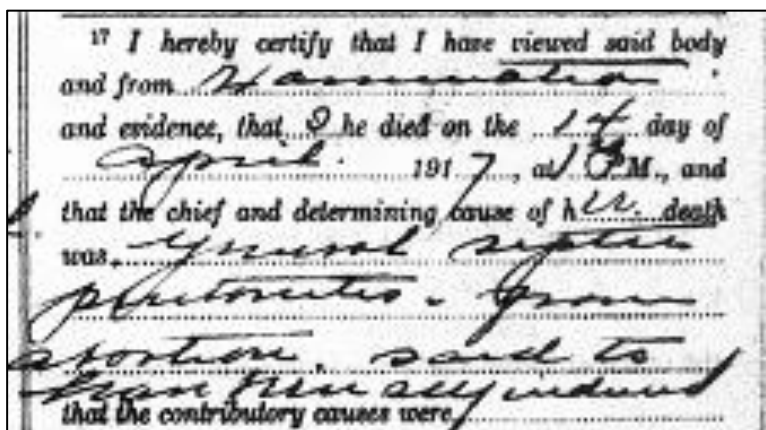 17 I hereby certify that I have viewed said body
and from Examination
and evidence, that S he died on the 14 day of
April. 1917, at 1 P M., and
that the chief and determining cause of her death
was, General septic
peritonitis. From
abortion, said to
have been self induced
that the contributory causes were